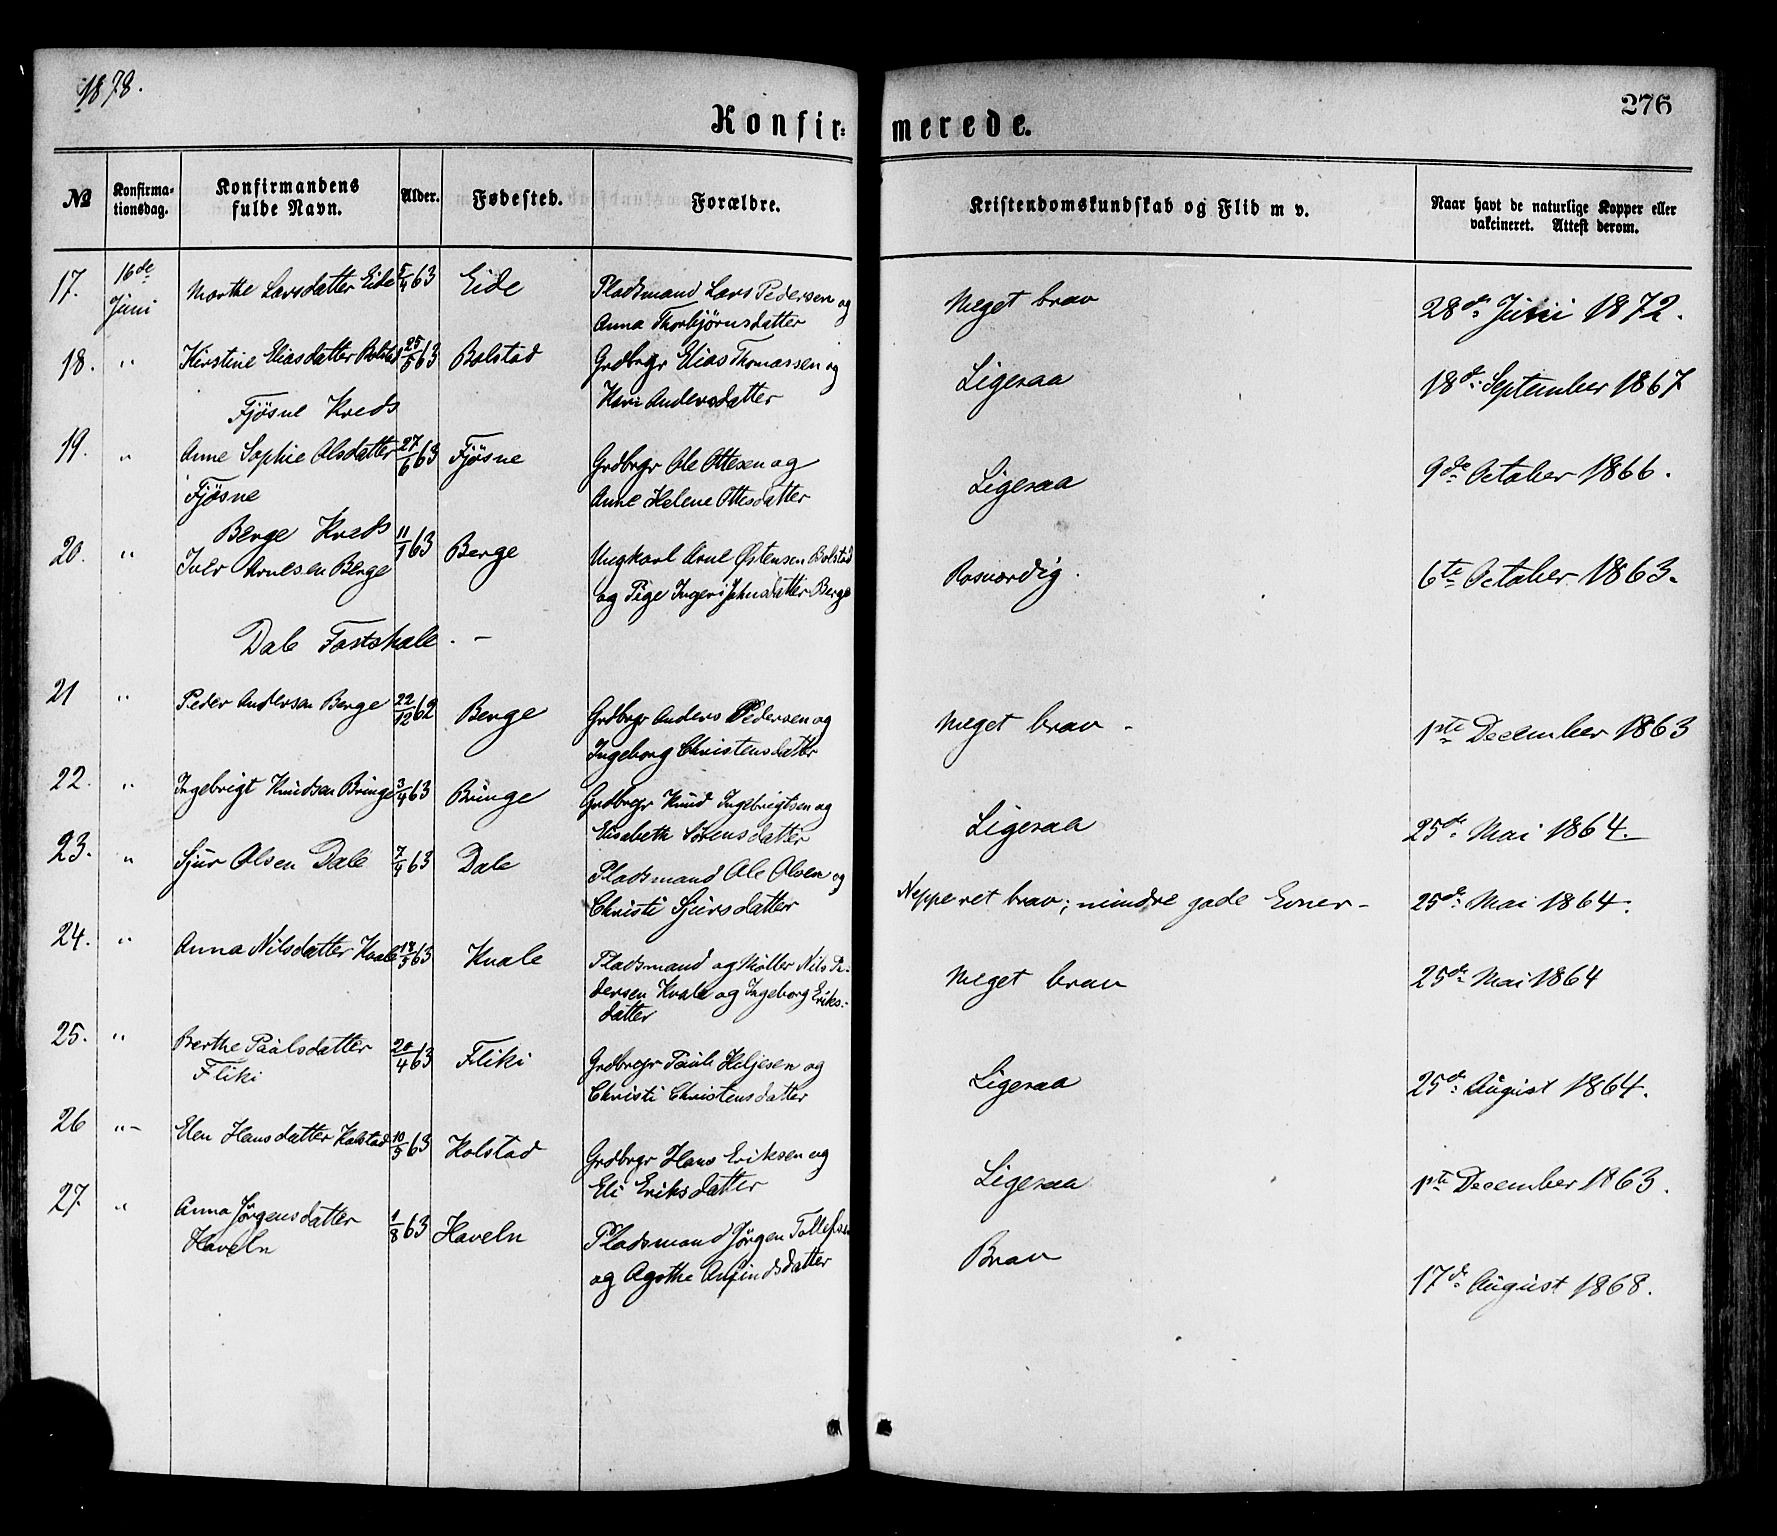 1878.
276
Konfir= merede.
№ Konfirma=tionsdag. Konfirmandens fulde Navn. Alder. Fødested. Forældre. Kristendomskundskab og Flid m v. Naar havt de naturlige Kopper eller vakcineret. Attest derom.
17. 16de Juni Marthe Larsdatter Eide 5/4 63 Eide Pladsmand Lars Pedersen og Meget brav 28de Juni 1872.
Anna Thorbjørnsdatter
18. " Kirstine Eliasdatter Bolstad 25/5 63 Bolstad Grdbrgr Elias Thomassen og Ligesaa 18de September 1867
Kari Andersdatter
Fjøsne Kreds
19. " Anne Sophie Olsdatter 27/6 63 Fjøsne Grdbrgr Ole Ottesen og Ligesaa 9de October 1866.
Fjøsne Anne Helene Ottesdatter
Berge Kreds
20. " Iver Arnesen Berge 11/1 63 Berge Ungkarl Arne Østensen Bolstad Rosværdig. 6te October 1863.
og Pige Ingeri Johnsdatter Berge
Dale Fastskole. -
21 " Peder Andersen Berge 22/12 62 Berge Grdbrgr Anders Pedersen og Meget brav - 1ste December 1863
Ingeborg Christensdatter
22. " Ingebrigt Knudsen Bringe 3/4 63 Bringe Grdbrgr Knud Ingebrigtsen og Ligesaa 25de Mai 1864.
Elisabeth Sørensdatter
23. " Sjur Olsen Dale 7/4 63 Dale Pladsmand Ole Olsen og Neppe ret brav; mindre gode Evner - 25de Mai 1864.
Christi Sjursdatter
24. " Anna Nilsdatter Kvale 18/5 63 Kvale Pladsmand og Møller Nils Pe- Meget brav 25de Mai 1864
dersen Kvale og Ingeborg Eriks-
datter
25. " Berthe Paalsdatter 20/4 63 Fliki Grdbrgr Paul Heljesen og Ligesaa 25de August 1864.
Fliki Christi Christensdatter
26 "- Elen Hansdatter Kolstad 10/5 63 Kolstad Grdbrgr Hans Eriksen og Ligesaa 1ste December 1863.
Eli Eriksdatter
27. " Anna Jørgensdatter 1/8 63 Haveln Pladsmand Jørgen Tollefsen Brav 17de August 1868.
Haveln og Agathe Anfindsdatter